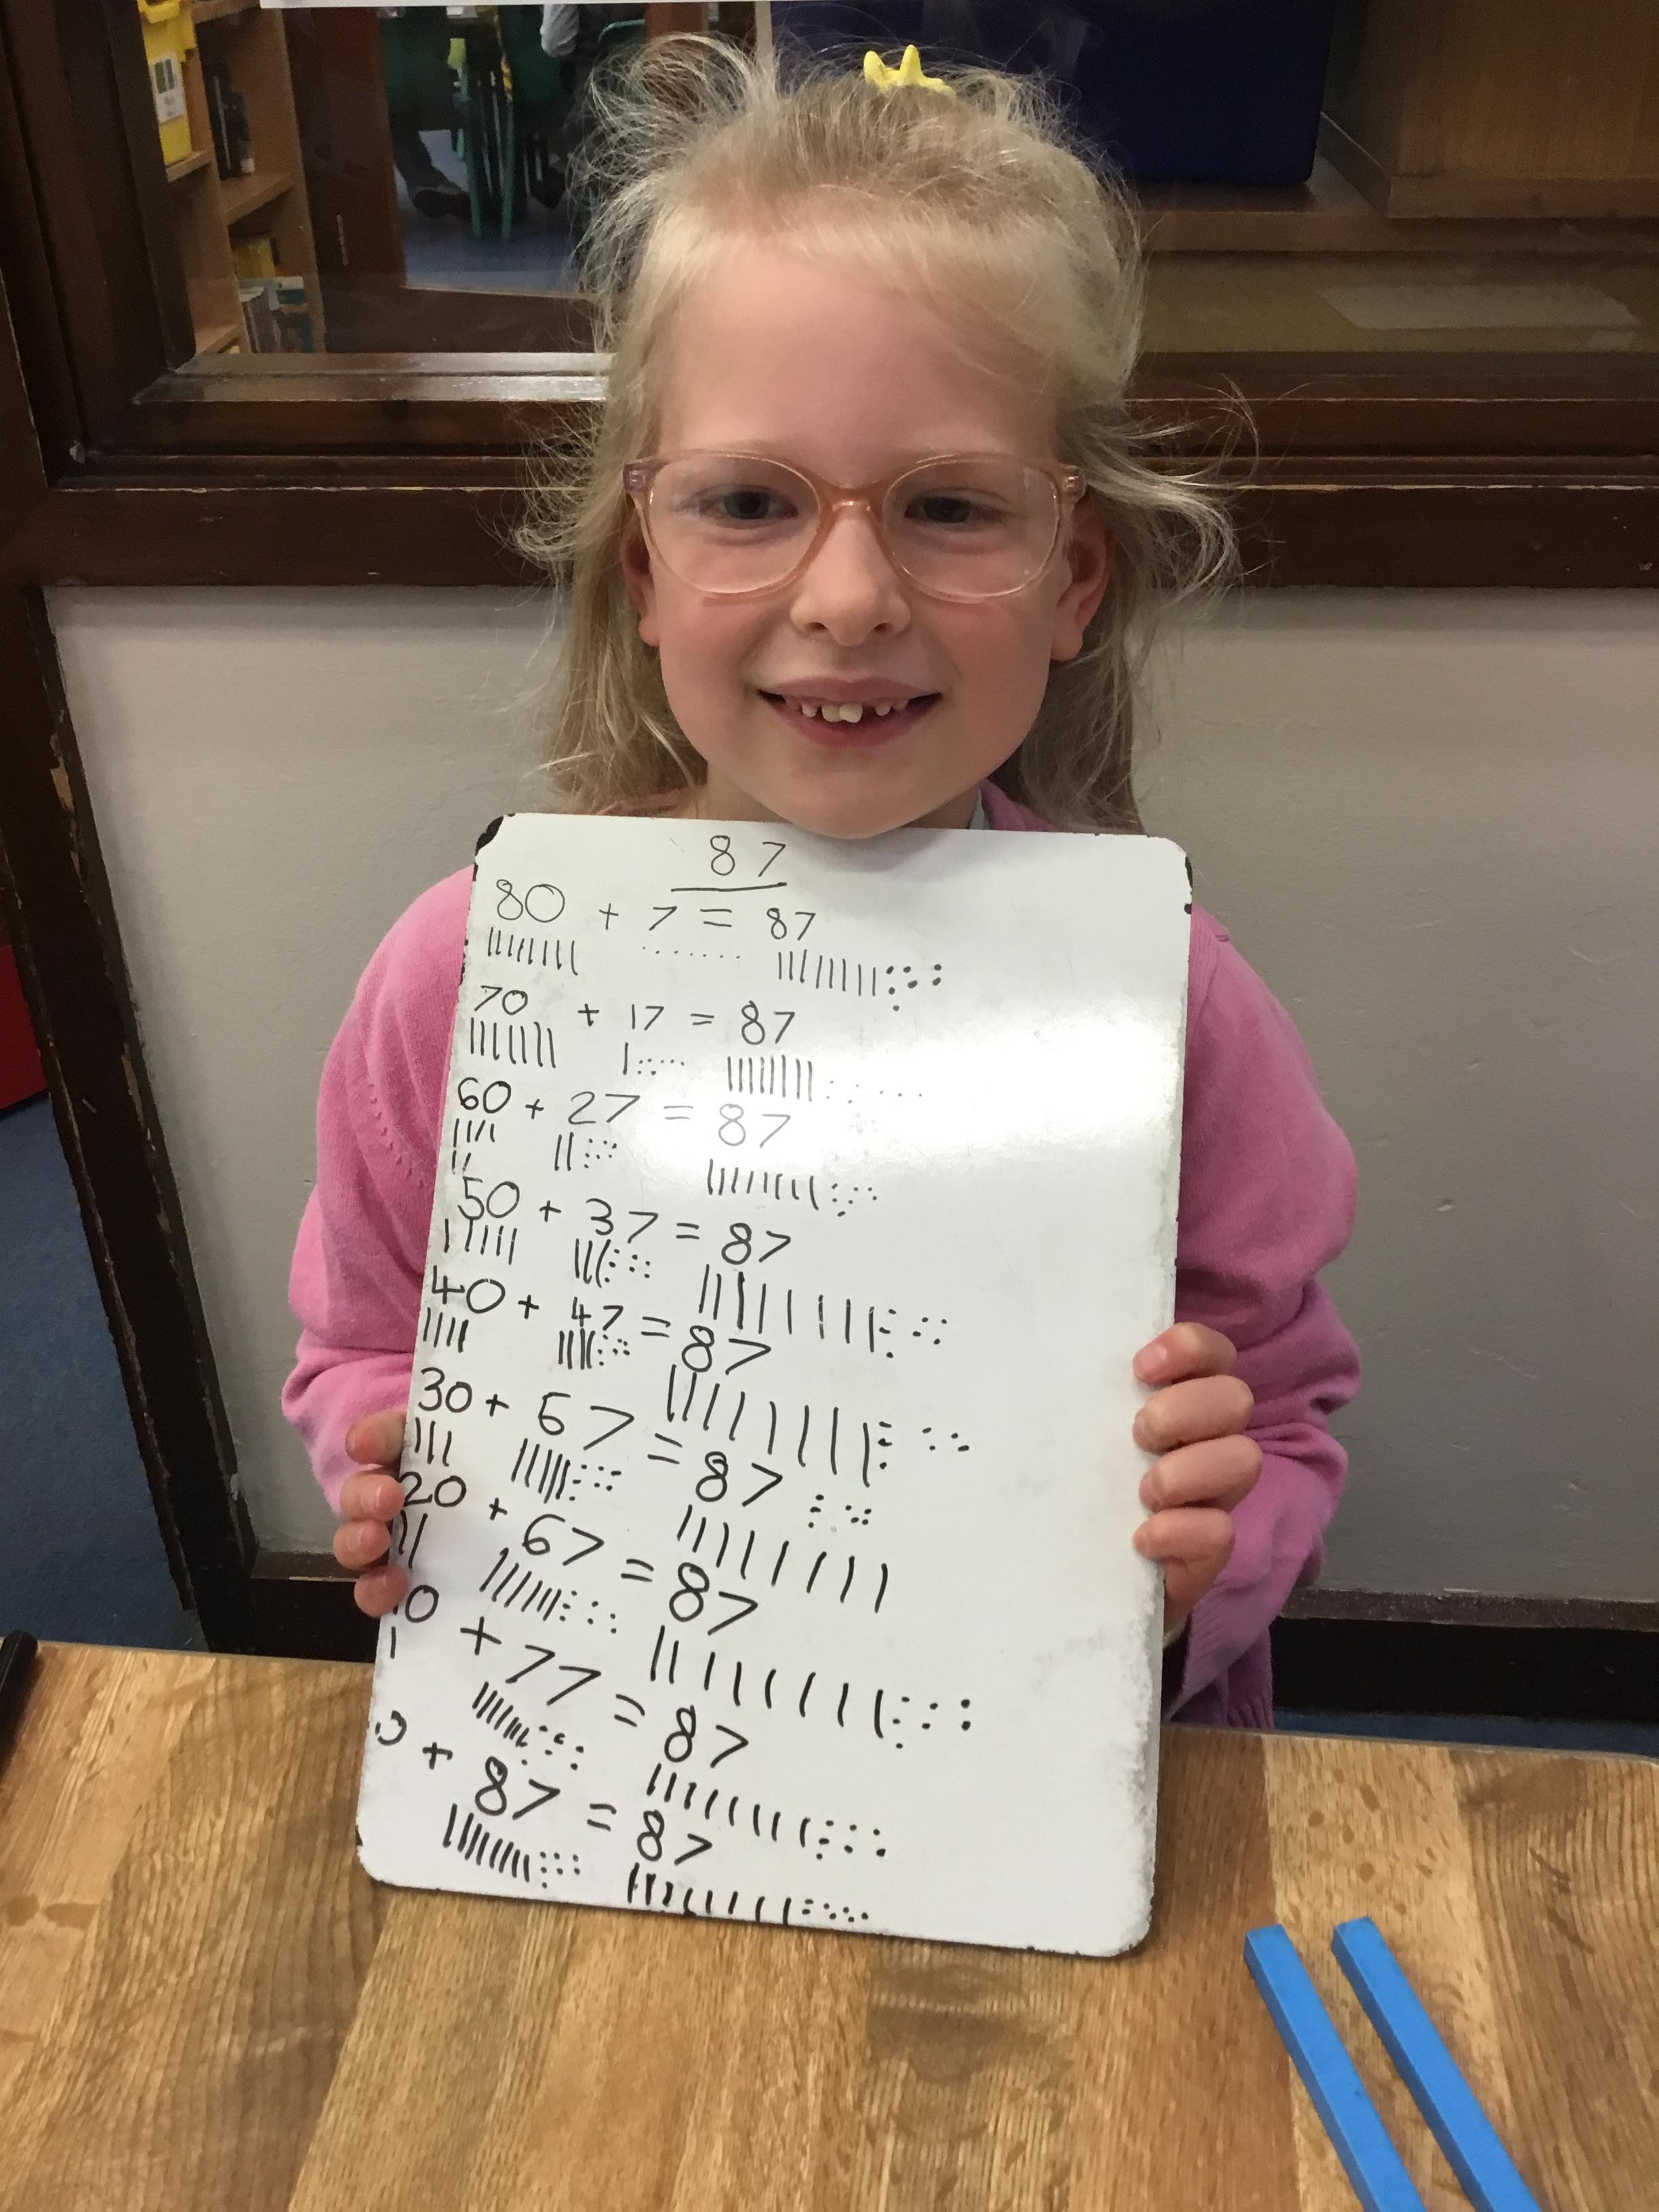 87
80 + 7 = 87
70 + 17 = 87
60 + 27 = 87
50 + 37 = 87
40 + 47 = 87
30 + 57 = 87
20 + 67 = 87
10 + 77 = 87
0 + 87 = 87